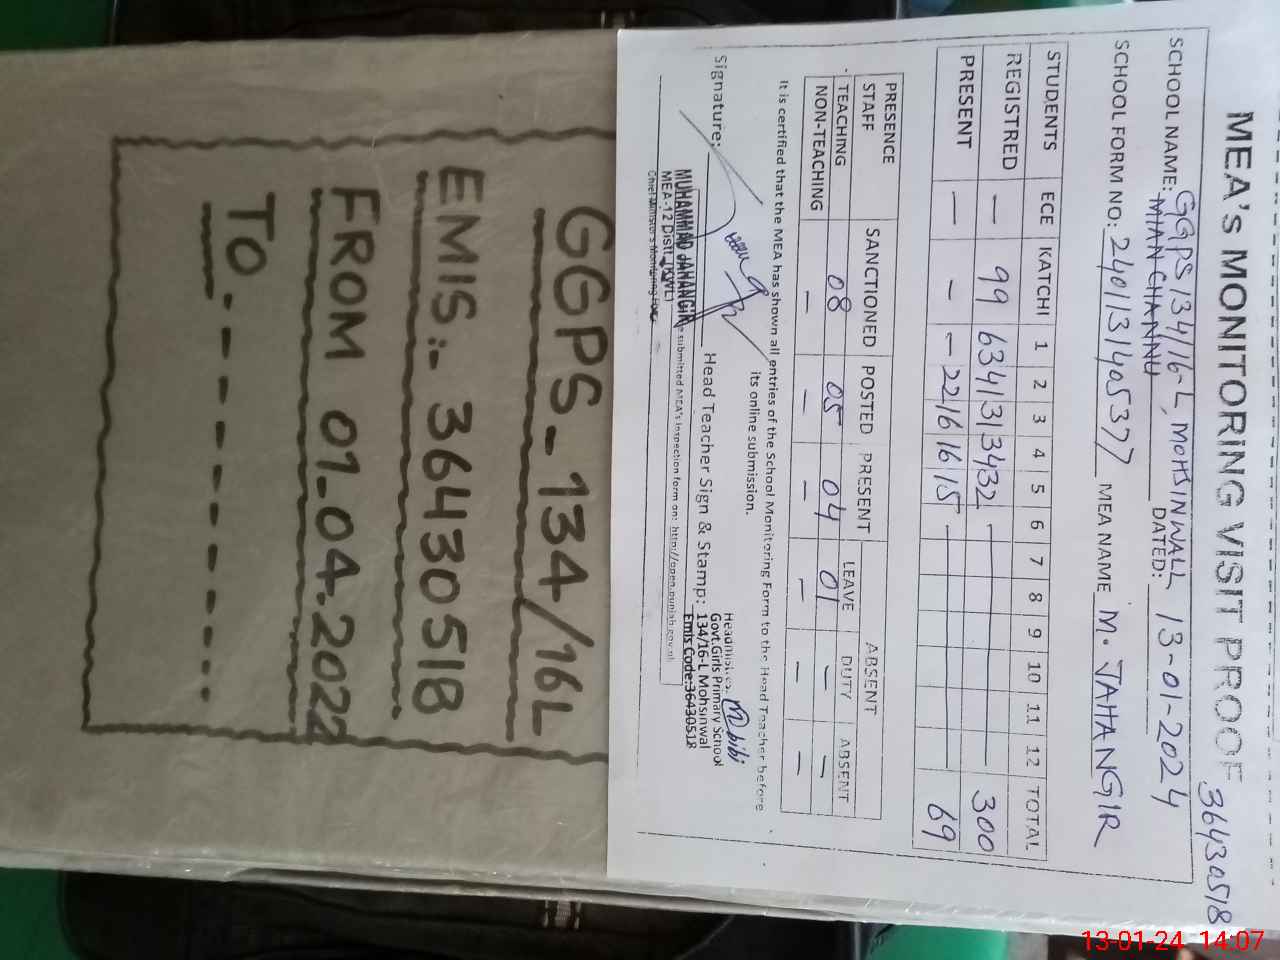 MEA's MONITORING VISIT PROOF
36430518
SCHOOL NAME: GGPS 134/16-L, MOHSINWALL DATED: 13-01-2024
MIAN CHANNU
SCHOOL FORM NO: 2401131405377 MEA NAME M. JAHANGIR
STUDENTS ECE KATCHI 1 2 3 4 5 6 7 8 9 10 11 12 TOTAL
REGISTRED — 99 63 41 31 34 32 — 300
PRESENT — - - 22 16 16 15 — 69
PRESENCE SANCTIONED POSTED PRESENT ABSENT
STAFF LEAVE DUTY ABSENT
TEACHING 08 05 04 01 — —
NON-TEACHING — — — — — —
It is certified that the MEA has shown all entries of the School Monitoring Form to the Head Teacher before
its online submission.
Signature: Head Teacher Sign & Stamp:
Headmistress
Govt.Girls Primary School
134/16-L Mohsinwal
Emis Code:36430518
MUHAMMAD JAHANGIR
MEA-12 Distt. (KWL)
Chief Minister's Monitoring Force
submitted MEA's Inspection form on: http://open.punjab.gov.pk
GGPS-134/16L
EMIS:- 36430518
FROM 01-04-2022
TO - - - - - - - - -
13-01-24 14:07